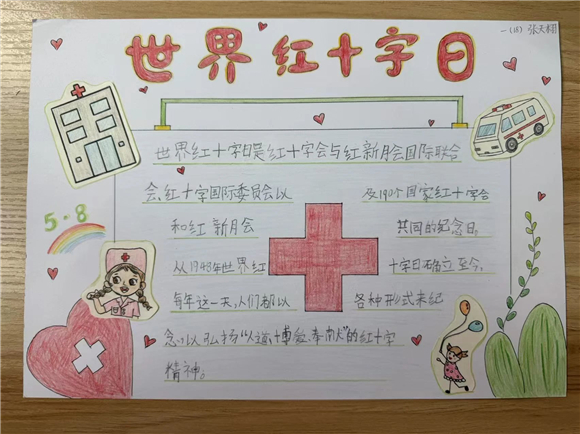 一(15) 张天
世界红十字日
世界红十字日是红十字会与红新月会国际联合
会,红十字国际委员会以 及190个国家红十字会
5·8
和红新月会 共同的纪念日。
从1948年世界红 十字日确立至今,
每年这一天,人们都以 各种形式来纪
念,以弘扬“人道、博爱、奉献”的红十字
精神。